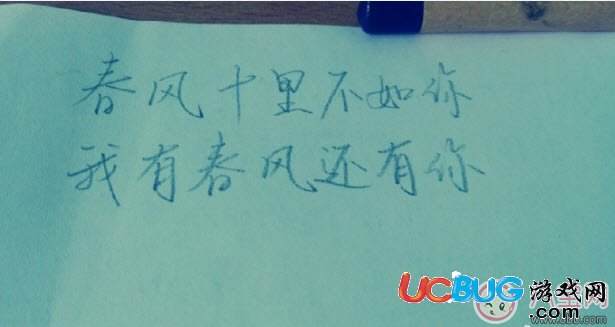 春风十里不如你
我有春风还有你
UCBUG游戏网
.com